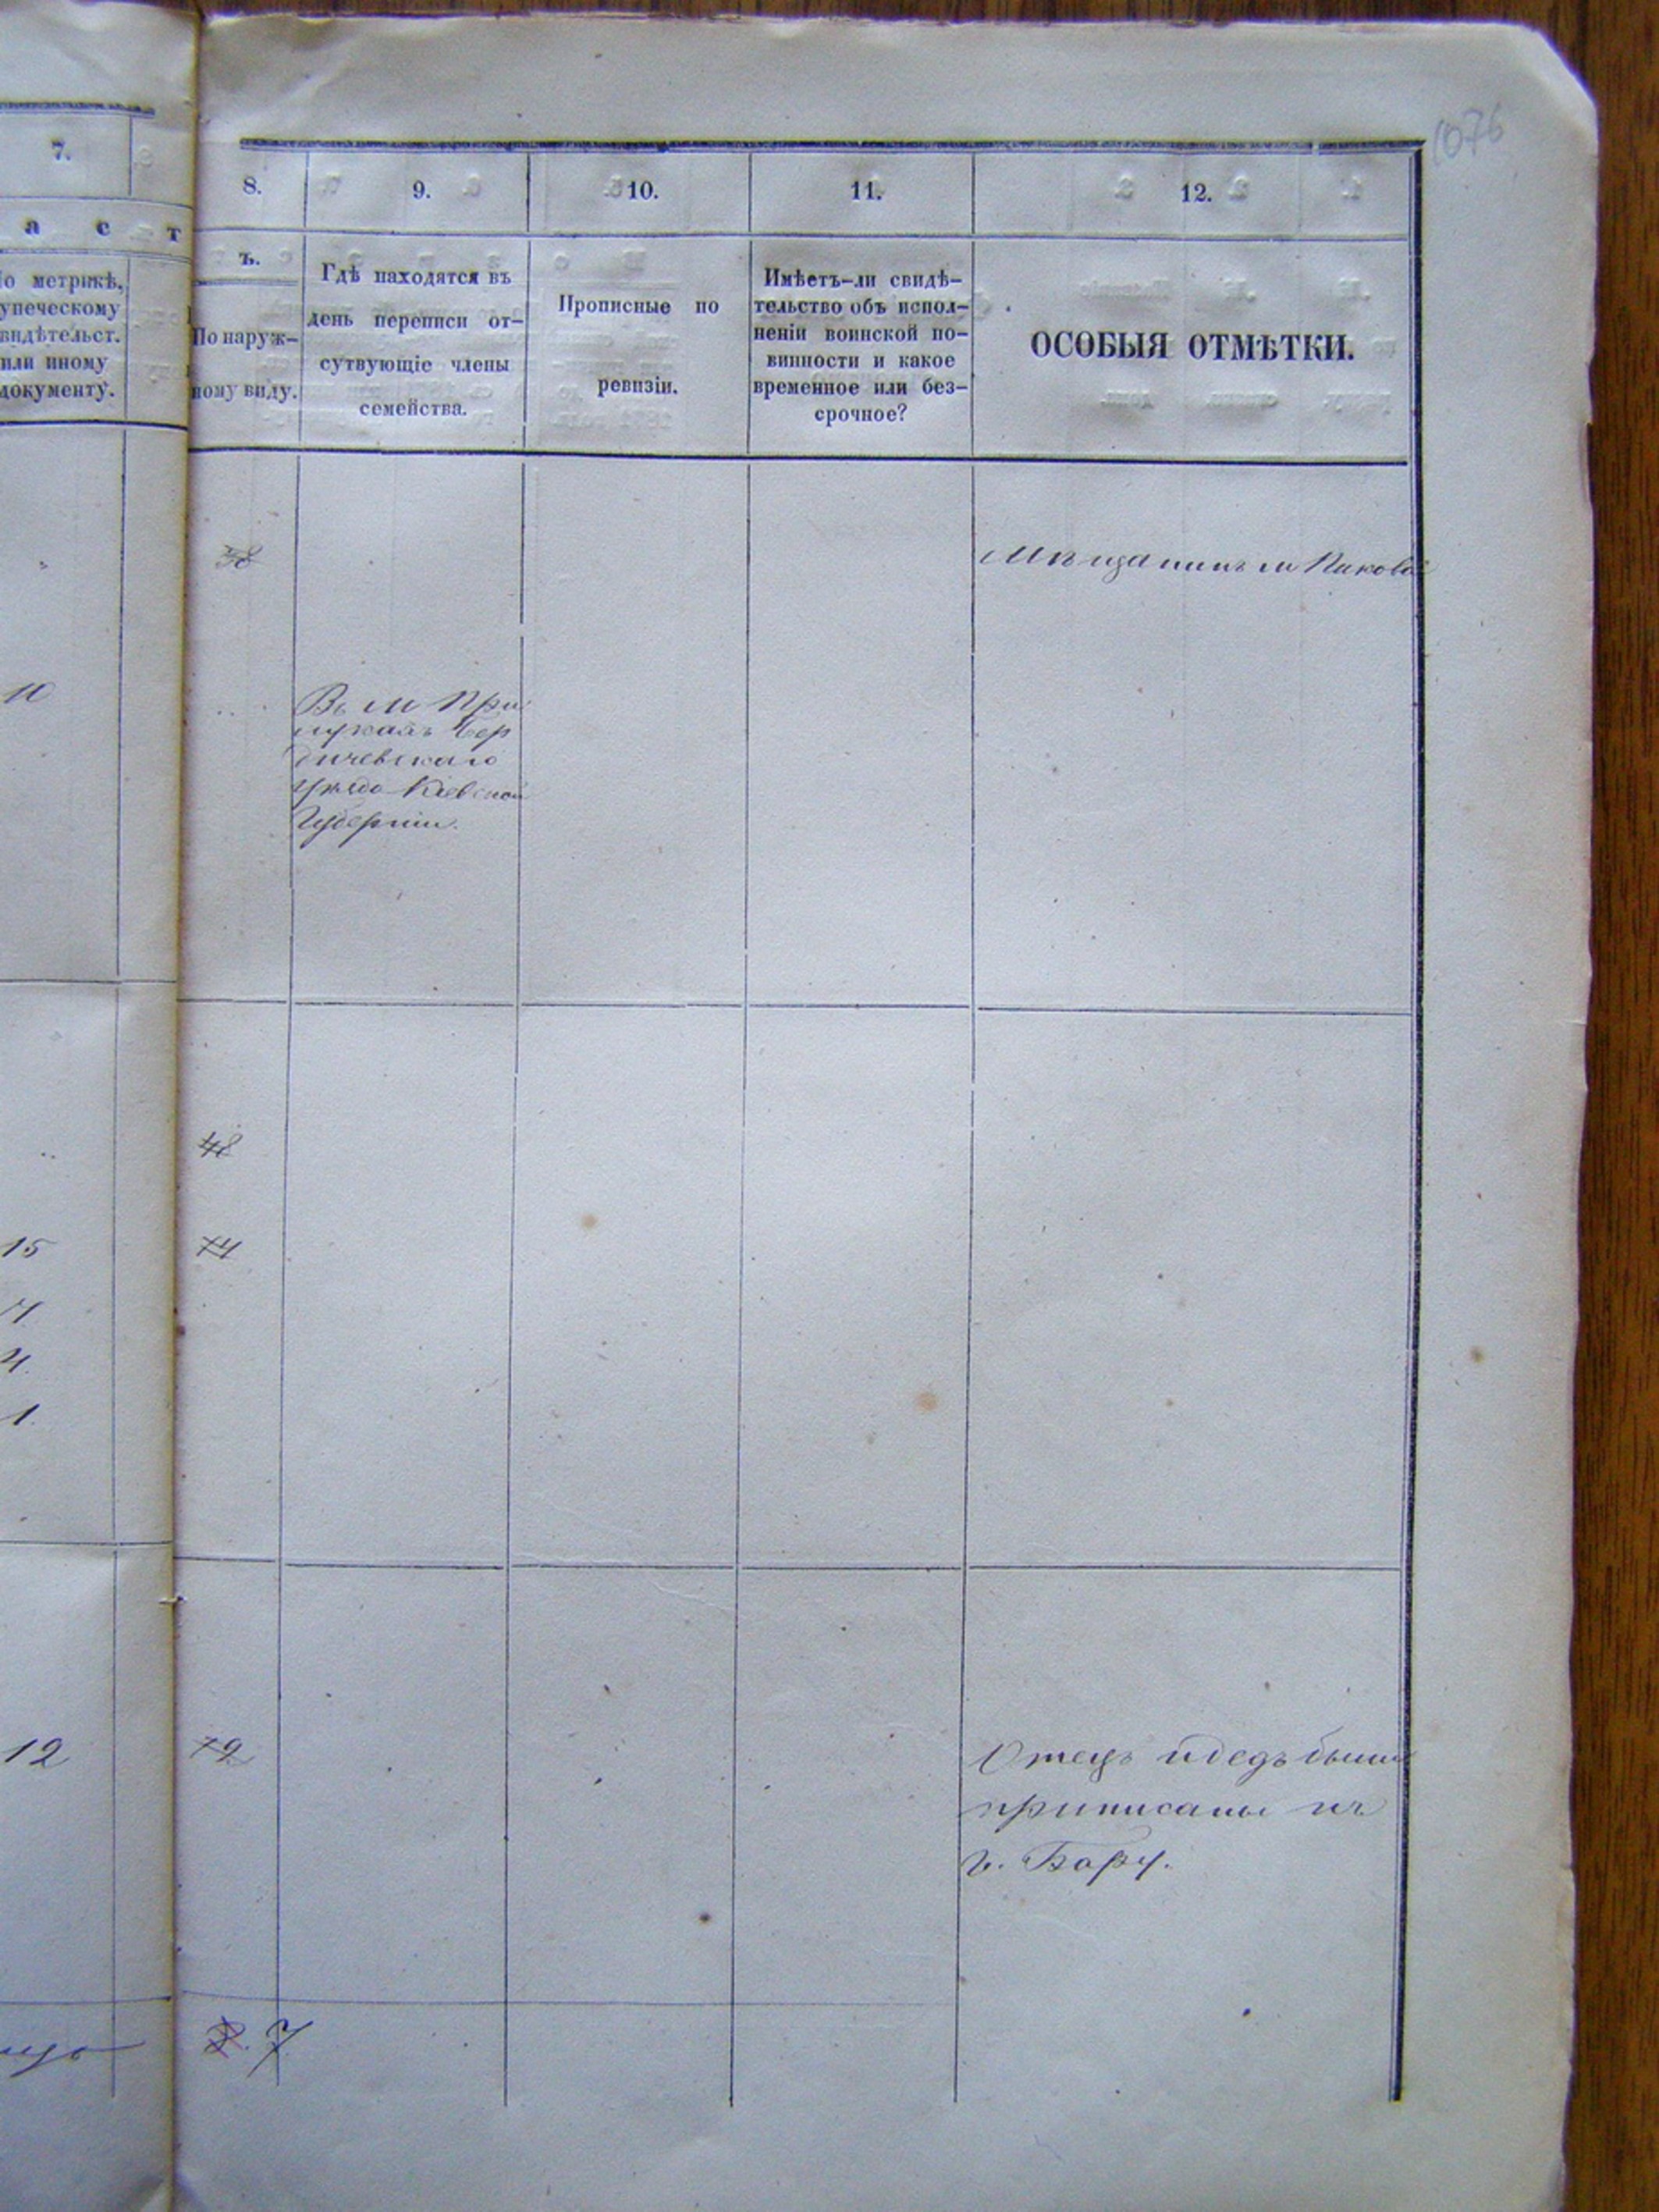 1076
7.
8.
9.
10.
11.
12.
а с т
ъ.
По метрикѣ,
купеческому
свидѣтельст.
или иному
документу.
По наруж-
ному виду.
Гдѣ находятся въ
день переписи от-
сутвующіе члены
семейства.
Прописные по
ревизіи.
Имѣетъ-ли свидѣ-
тельство объ испол-
неніи воинской по-
винности и какое
временное или без-
срочное?
ОСОБЫЯ ОТМѢТКИ.
38
Мѣщанинъ м Пикова
10
Въ м При
лукахъ Бер
дичевскаго
уѣзда Кіевской
Губерніи.
48
15
74
7.
4.
1.
12
72
Отецъ и дедъ были
приписаны къ
г. Бару.
7